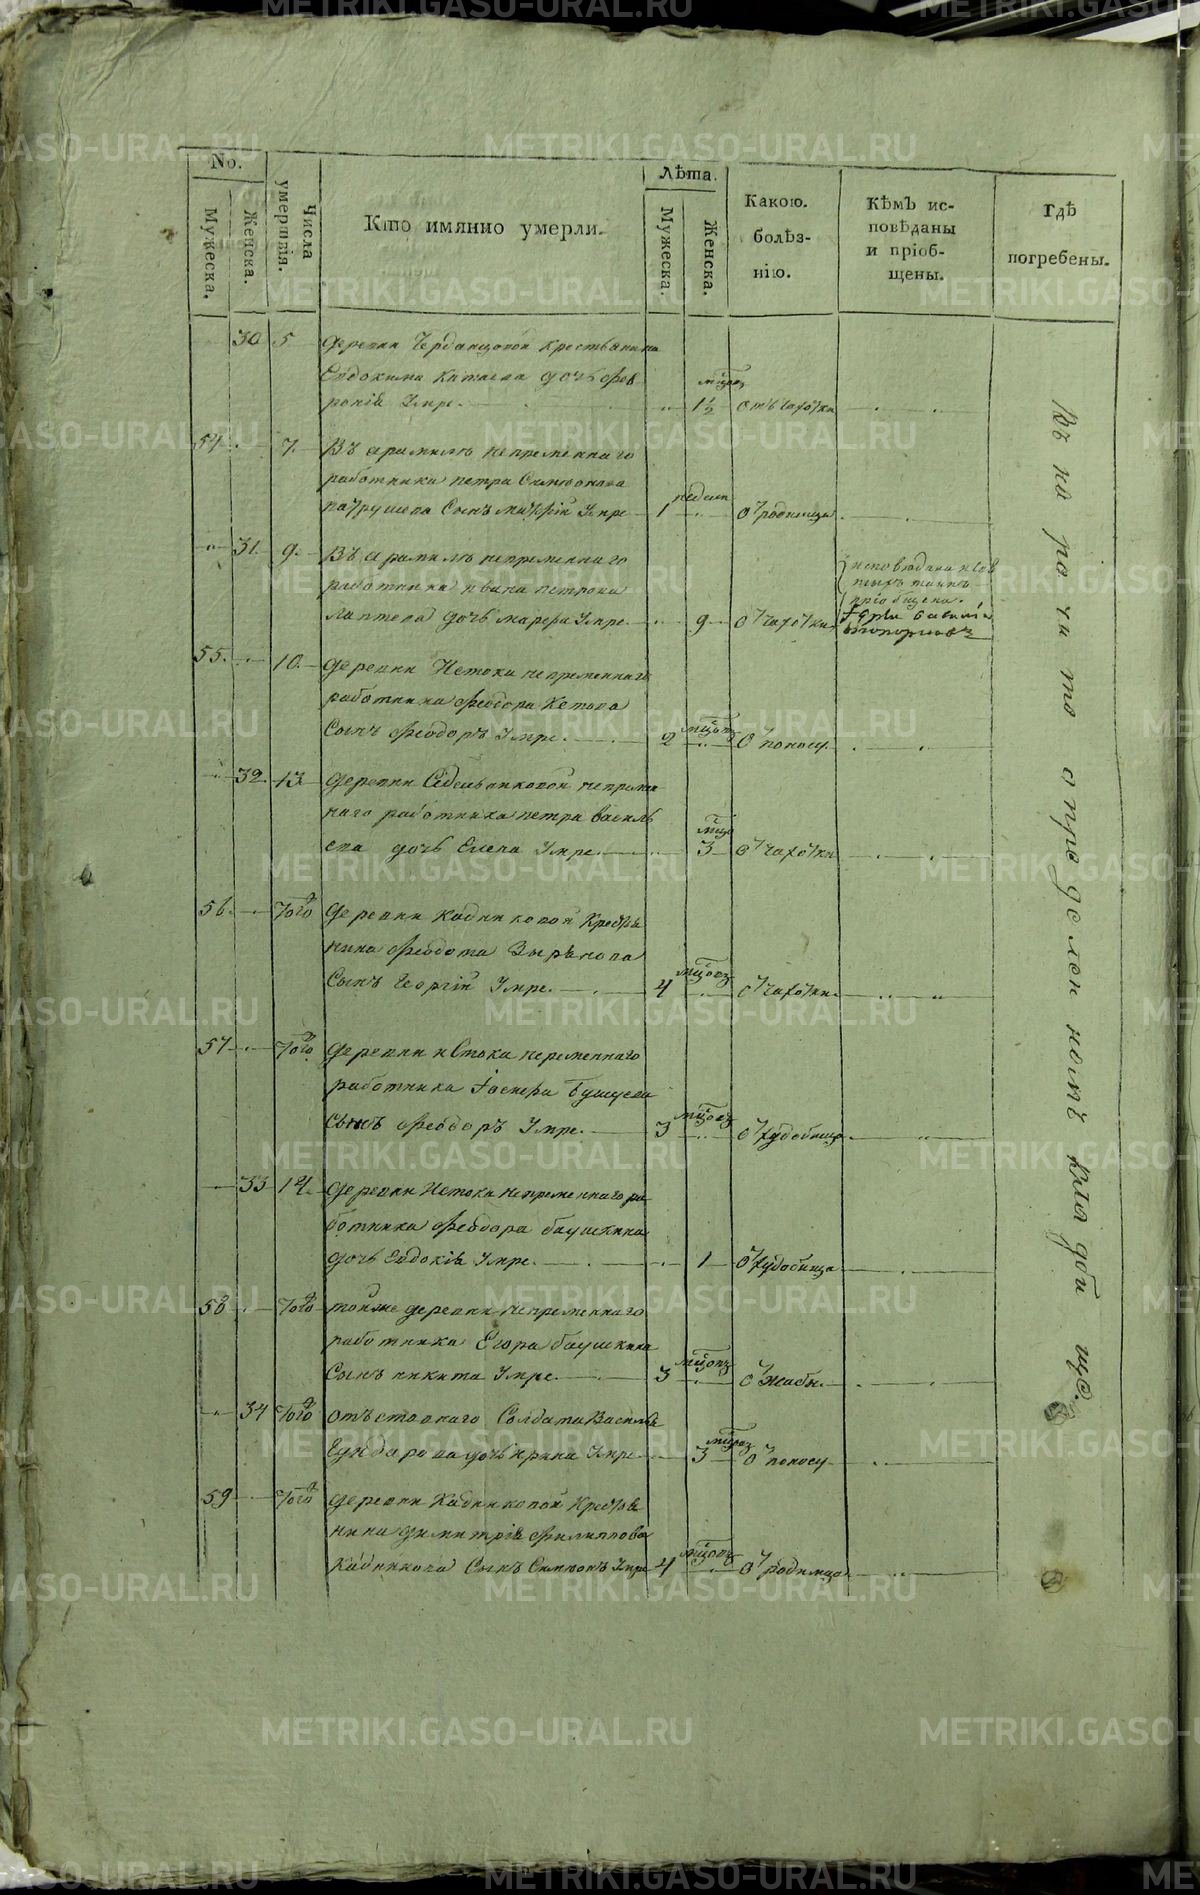 No.
Мужеска.
Женска.
Числа умершія.
Кто имянно умерли.
Лѣта.
Мужеска.
Женска.
Какою.
болѣз-
нію.
Кѣмъ ис-
повѣданы
и пріоб-
щены.
гдѣ
погребены.
30 5 деревни Черданцовой крестьянина
Евдокима дочь Фев
ронія Умре. 1½ отъ чахотки
54 7 Въ арамилѣ непременнаго
работника петра Симионова
патрушева Сынъ Умре 1 недели о родимца
31 9 Въ арамилѣ непременнаго
работника ивана петрова
лаптева дочь марфа Умре 9 о чахотки
исповедана и Свя
тыхъ таинъ
пріобщена.
55 10 деревни Истока непременнаго
работника феодора Кетова
Сынъ феодоръ Умре. 2 о поносу
32 13 деревни Седельниковой непремен
наго работника петра василь
ева дочь Елена Умре. 3 о чахотки
56 того деревни Кадниковой Крестья
нина феодота Зырянова
Сынъ Георгій Умре. 4 о чахотки
57 того деревни истока непременнаго
работника
Сынъ феодоръ Умре. 3 о худобища
33 14 деревни Истока непременнаго ра
ботника феодора баушкина
дочь Евдокія Умре. 1 о худобища
58 того тойже деревни непременнаго
работника Егора баушкина
Сынъ никита Умре. 3 о жабы.
34 того отъставнаго Солдата Василья
дочь ирина Умре. 3 о поносу
59 того деревни Кадниковой Крестья
нина димитрія филиппова
Кадникова Сынъ Симионъ Умре 4 о родимца
На по ро чи то определенномъ кладби щѣ.
METRIKI.GASO-URAL.RU